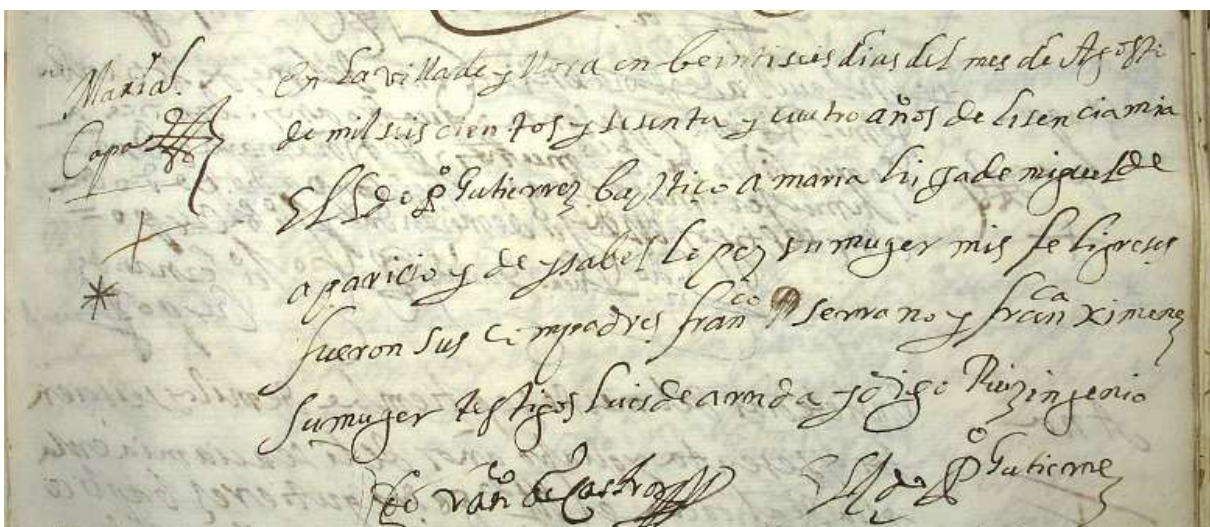 Maria.
En la villa de yllora en beintiseis dias del mes de Agosto
de mil seis cientos y sesenta y cuatro años de lisencia mia
El Ldo Po Gutierrez baptiço a maria hija de miguel de
aparicio y de ysabel Lopez su muger mis feligreses
fueron sus compadres franco serrano y franca ximenez
su muger testigos Luis de aranda y diego Ruiz ingenio
de Castro
El Ldo Po Gutierrez